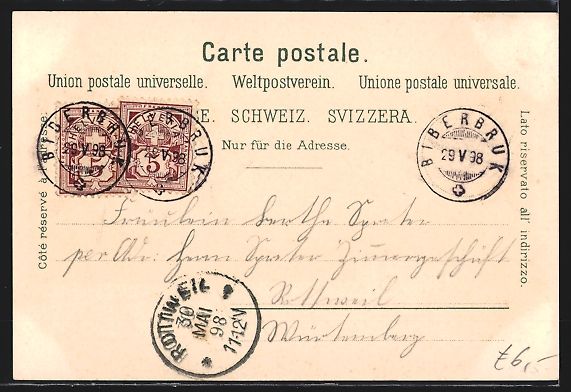 Carte postale.
Union postale universelle. Weltpostverein. Unione postale universale.
SCHWEIZ. SVIZZERA.
Nur für die Adresse.
Côté réservé à l'adresse.
Lato riservato all' indirizzo.
BIBERBRUK
29 V 98
5
BIBERBRUK
29 V 98
5
BIBERBRUK
29 V 98
Fräulein Bertha
per Adr: Herrn
Rottweil
Württemberg
ROTTWEIL 1
30
MAI
98
11-12V
*
£6,-